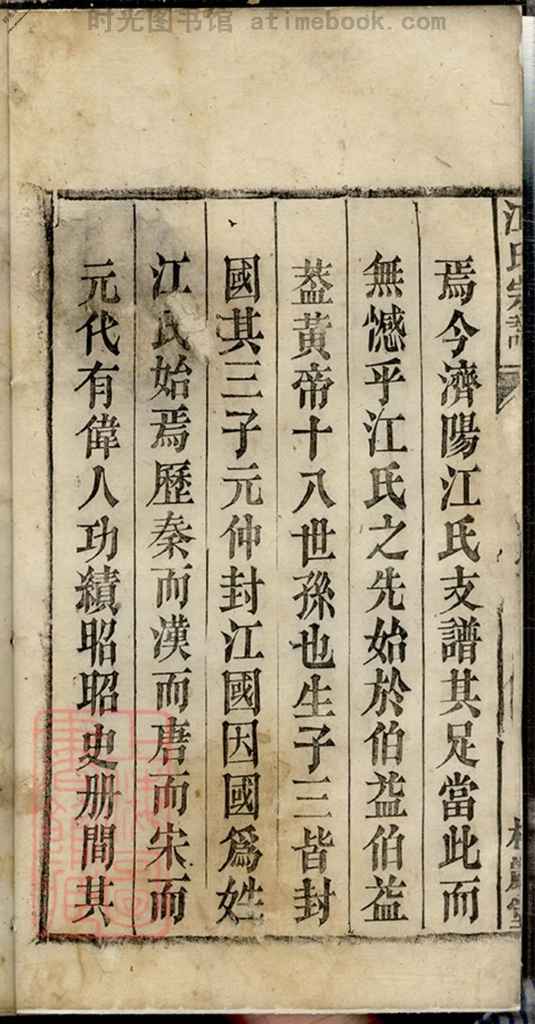 时光图书馆 atimebook.com
江氏宗譜
焉今濟陽江氏支譜其足當此而
無憾乎江氏之先始於伯益伯益
葢黃帝十八世孫也生子三皆封
國其三子元仲封江國因國爲姓
江氏始焉歷秦而漢而唐而宋而
元代有偉人功績昭昭史册間其